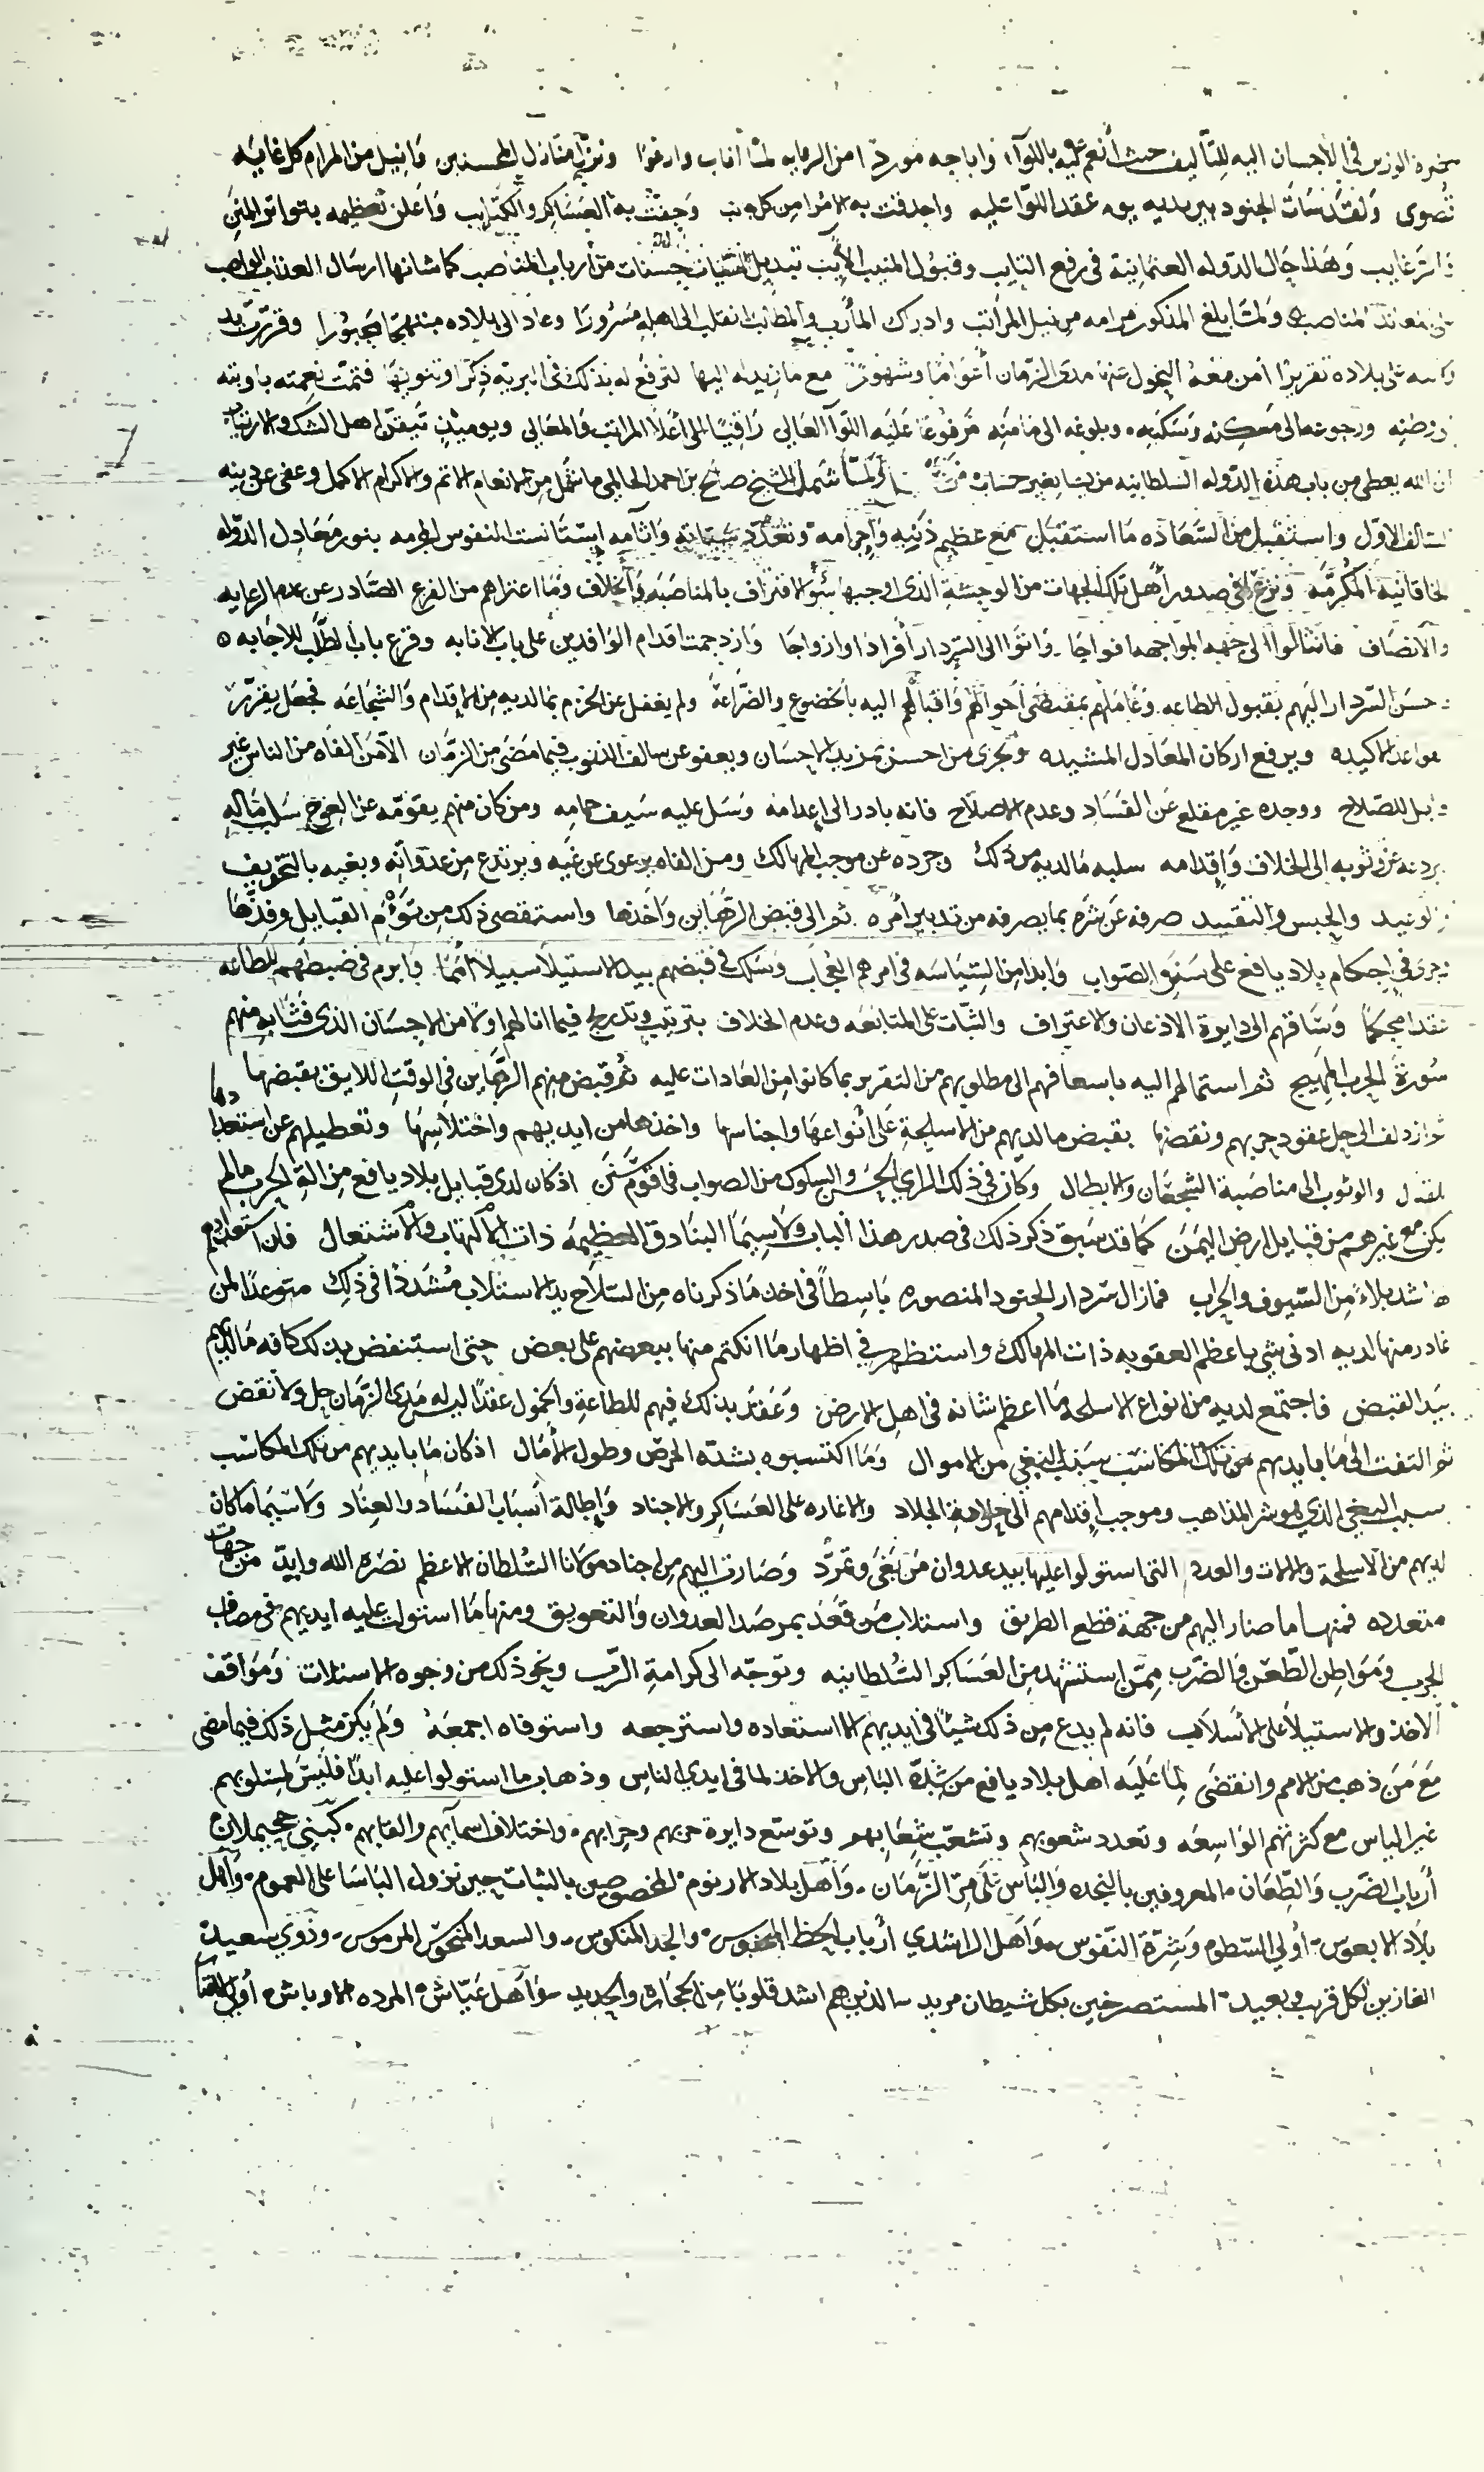 حضرة الوزير في الاحسان اليه للتأليف حيث أنعم عليه باللوآء واباحه موردًا من الرعايه لمّا أناب وارعوا ونزّله منازل المحسنين وانيل من المرام كل غايه
قصوى ولقد سات الجنود بين يديه يوم عقد اللوّا عليه واحدقت به الامرا من كل جانب وحفّت به العساكر والكتايب واعلن تعظيمه بتواتر المنن
والرغايب وهذا حال الدوله العثمانية في رفع التايب وقبول المنيب الآيب تبديل السيات حسنات من أرباب المناصب كما شانها ارسال العذاب الواصب
على المعاند المناصب ولمّا بلغ المذكور مرامه من نيل المراتب وادرك المأرب والمطالب انقلب الى اهله مسرورًا وعاد الى بلاده مبتهجًا محبورًا وقررت يد
على بلاده تقريرًا أمن معه التحول عنها مدى الزمان أعوامًا وشهورًا مع ما زيد له اليها لترفع له بذلك في البريّه ذكرًا وتنويهًا فتمت نعمته باوبته
ووطنه ورجوعه الى معكنه وسكنه وبلوغه الى مأمنه مرفوعًا عليه اللوآ العالي راقيًا الى أعلا المراتب والمعالي ويوميذٍ تيقّن اهل الشك والارتياب
ان الله يعطي من باب هذه الدوله السلطانيه من يشا بغير حساب ولمّا شمل الشيخ صالح بن احمد الحالمي ما شمل من الانعام الاتم والاكرام الاكمل وعفي عن ذنبه
السالف الاول واستقبل من السعاده ما استقبل مع عظيم ذنبه وإجرامه وتعدّد سيئاته وآثامه استانست النفوس المجرمه بنور معادل الدوله
الخاقانيه المكرمّه ونزع ما في صدور أهل تلك الجهات من الوحشة الذي اوجبها سوء الاقتراف بالمناصبه والخلاف وما اعتراهم من الفزع الصادر عن عدم الرعايه
والانصاف فانثالوا الى جهة المواجهه افواجًا واتوا الى السردار أفرادًا وازواجًا وازدحمت اقدام الوافدين على باب الانابه وقرع باب الطلب للاجابه
وحسن السردار اليهم بقبول الطاعه وعاملهم بمقتضى أحوالهم واقبالهم اليه بالخضوع والضراعة ولم يغفل عن الحزم بما لديه من الاقدام والشجاعه فجعل يقرر
قواعد الاكيده ويرفع اركان المعادل المشيده ويجزى من احسن بمزيد الاحسان ويعفو عن سالف الذنوب فيما مضى من الزمان الا من الفاه من الناس غير
قابل للصلاح ووجده غير مقلع عن الفساد وعدم الاصلاح فانه بادر الى إعدامه وسل عليه سيف حمامه ومن كان منهم يقوّمه عن العوج سلب ماله
ويردعه عن وثوبه إلى الخلاف وإقدامه سلبه ما لديه من ذلك وجرّده عن موجب المهالك ومن الفاه يرعوى عن غيه ويرتدع من عدوانه وبغيه بالتخويف
والوعيد والحبس والتقييد صرفه عن شره بما يصرفه من تدبير أمره ثم الى قبض الرهاين واخذها واستقصى ذلك من توأم القبايل وفذها
وجرى في إحكام بلاد يافع على سنن الصواب وابدا من السياسه في امرهم العجاب وسلك في قبضهم بيد الاستيلا سبيلا اممًا وابرم في ضبطهم للطاعه
عقدا محكما وساقهم الى دايرة الاذعان والاعتراف والثبات على المتابعه وعدم الخلاف بترتيب وتدريج فيما انالهم اولا من الاحسان الذي فثابه منهم
سورة الحرب المهيج ثم استمالهم اليه باسعافهم الى مطلوبهم من التقرير بما كانوا من العادات عليه ثم قبض منهم الرهاين في الوقت اللايق بقبضها
ثم ازدلف الى حل عقود حربهم ونقضها بقبض ما لديهم من الاسلحة على أنواعها واجناسها واخذها من ايديهم واختلاسها وتعطيلهم عن استعدادها
للقتال والوثوب الى مناصبة الشجعان والابطال وكان في ذلك الراي الحسن والسلوك من الصواب في اقوم سنن اذ كان لدى قبايل بلاد يافع من الة الحرب ما لم
يكن مع غيرهم من قبايل ارض اليمن كما قد سبق ذكر ذلك في صدر هذا الباب ولاسيما البنادق العظيمه ذات الالتهاب والاشتعال فان استعدادهم
بها اشد بلاء من السيوف والحراب فما زال سردار الجنود المنصوره باسطًا في اخذ ما ذكرناه من السلاح يد الاستلاب مشددًا في ذلك متوعدًا لمن
غادر منها لديه ادنى شي باعظم العقوبه ذات المهالك واستظهر في اظهار ما انكتم منها ببعضهم على بعض حتى استنفض بذلك كافه ما لديهم
بيد القبض فاجتمع لديه من انواع الاسلحه ما اعظم شانه في اهل الارض وعقد بذلك فيهم للطاعة والخمول عقدًا ليس له مدى الزمان حل ولا نقض
ثم التفت الى ما بايديهم من تلك المكاسب بيد البغي من الاموال وما اكتسبوه بشدّه الحرص وطول الآمال اذ كان ما بايديهم من تلك المكاسب
سبب البغي الذي هو شر المذاهب وموجب إقدامهم الى ملاحمة الجلاد والاغاره على العساكر والاجناد وإطالة أسباب الفساد والعناد ولاسيما ما كان
لديهم من الاسلحة والالات والعدد التي استولوا عليها بيد عدوان من بغى وتمرّد وصارت اليهم من اجناد مولانا السلطان الاعظم نصره الله وايد من جهات
متعدده فمنها ما صار اليهم من جهة قطع الطريق واستلاب من قعد بمرصد العدوان والتعويق ومنها ما استولت عليه ايديهم في مصاف
الحرب ومواطن الطعن والضرب ممّن استشهد من العساكر السلطانيه وتوجّه الى كرامة الرب ونحو ذلك من وجوه الاستلاب ومواقف
الاخذ والاستيلا على الأسلاب فانه لم يدع من ذلك شيئًا في ايديهم الا استعاده واسترجعه واستوفاه اجمعه ولم يكن مثل ذلك فيما مضى
مع من ذهب من الامم وانقضى لما عليه اهل بلاد يافع من شدة الباس والاخذ لما في ايدي الناس وذهاب ما استولوا عليه ابدًا فليس لمسلوبهم
غير الياس مع كثرتهم الواسعه وتعدد شعوبهم وتشعب شعابهم وتوسّع دايرة حربهم وحرابهم واختلاف اسمآيهم والقابهم كبني
أرباب الضرب والطعان المعروفين بالنجده والباس على مر الزمان واهل بلاد المخصوصين بالثبات حين نزول الباسا على العموم واهل
بلاد أولي السطوم وشرّة النفوس واهل الراشدي أرباب الحظ المبخوس والجد المنكوس والسعد المنحوس المرموس وذوي سعيد
الغازين لكل قريب وبعيد المستصرخين بكل شيطان مريد الذين هم اشد قلوبًا من الحجارة والحديد واهل عيّاش المرده الاوباش أولي